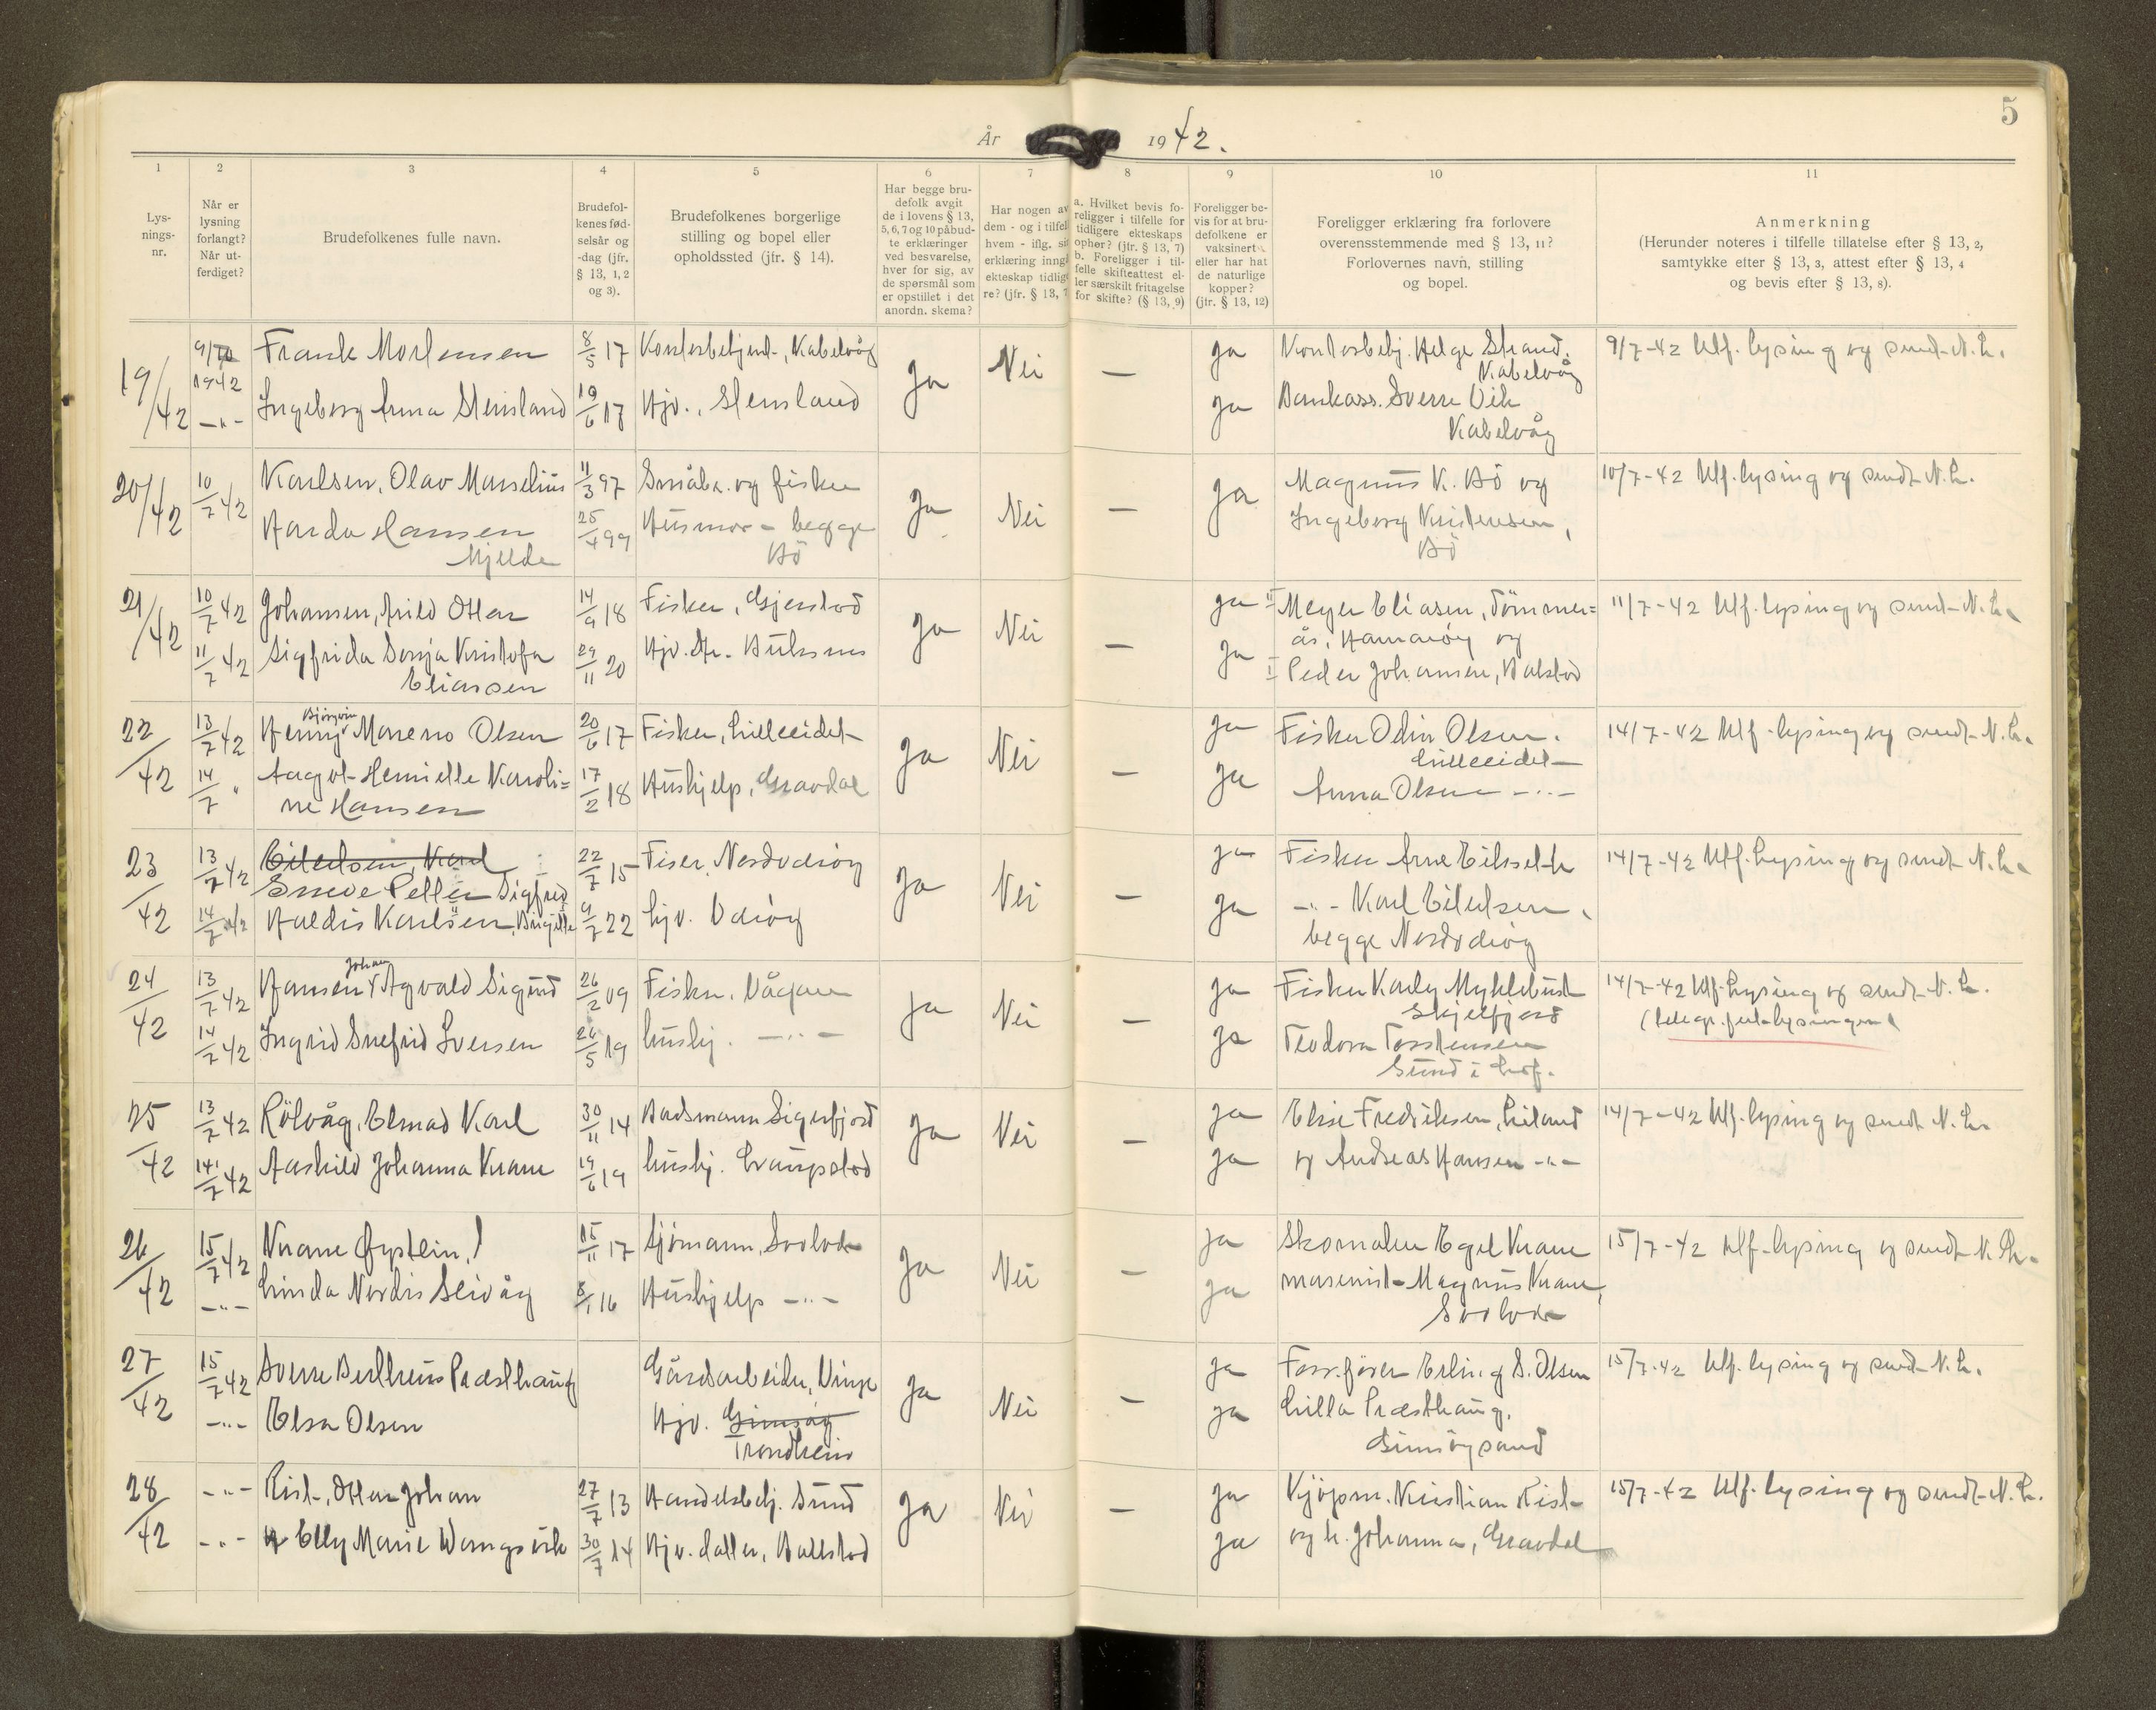 5
År 1942.
1 2 3 4 5 6 7 8 9 10 11
Lys-
nings-
nr.
Når er
lysning
forlangt?
Når ut-
ferdiget?
Brudefolkenes fulle navn.
Brudefol-
kenes fød-
selsår og
-dag (jfr.
§ 13, 1, 2
og 3).
Brudefolkenes borgerlige
stilling og bopel eller
opholdssted (jfr. § 14).
Har begge bru-
defolk avgit
de i lovens § 13,
5, 6, 7 og 10 påbud-
te erklæringer
ved besvarelse,
hver for sig, av
de spørsmål som
er opstillet i det
anordn. skema?
Har nogen av
dem - og i tilfel
hvem - iflg. si
erklæring inng
ekteskap tidlig
re? (jfr. § 13, 7
a. Hvilket bevis fo-
religger i tilfelle for
tidligere ekteskaps
opher? (jfr. § 13, 7)
b. Foreligger i til-
felle skifteattest el-
ler særskilt fritagelse
for skifte? (§ 13, 9)
Foreligger be-
vis for at bru-
defolkene er
vaksinert
eller har hat
de naturlige
kopper?
(jfr. § 13, 12)
Foreligger erklæring fra forlovere
overensstemmende med § 13, 11?
Forlovernes navn, stilling
og bopel.
Anmerkning
(Herunder noteres i tilfelle tillatelse efter § 13, 2,
samtykke efter § 13, 3, attest efter § 13, 4
og bevis efter § 13, 8).
19/42 9/7 1942 Frank Mortensen 8/5 17 Kontorbetjent, Kabelvåg Ja Nei — ja Kontorbetj. Helge Strand, 9/7-42 Utf. lysing og sendt N. L.
Kabelvåg
—"— Ingeborg Anna Steinsland 19/6 17 Hjv., Stensland ja Bankass. Sverre Vik
Kabelvåg
20/42 10/7 42 Karlsen, Olav Marselius 11/3 97 Småbr. og fisker Ja Nei — ja Magnus K. Bö og 10/7-42 Utf. lysing og sendt N. L.
Harda Hansen 25/4 99 Husmor - begge Ingeborg Kristensen,
Mjelde Bö Bö
21/42 10/7 42 Johansen, Arild Otter 14/9 18 Fisker, Gjerstad Ja Nei — ja II Meyer Eliasen, Tömmer= 11/7-42 Utf. lysing og sendt N. L.
ås, Hamaröy og
11/7 42 Sigfrida Sonja Kristofa 29/11 20 Hjv. dtr. Buksnes ja I Peder Johansen, Balstad
Eliassen
22/42 13/7 42 Henny Björgvin Mareno Olsen 20/6 17 Fisker, Lilleeidet Ja Nei — ja Fisker Odin Olsen. 14/7-42 Utf. lysing og sendt N. L.
Lilleeidet
14/7 " Aagot Henrielle Karoli= 17/2 18 Hushjelp, Gravdal ja Anna Olsen —"—
ne Hansen
23/42 13/7 42 Eilertsen, Karl 22/7 15 Fiser, Nordvdröy Ja Nei — ja Fisker Arne 14/7-42 Utf. Lysing og sendt N. L.
Sneve Petter Sigfred
14/7 42 Haldis Karlsen, Birgitte 9/7 22 hjv. ja —"— Karl Eilertsen,
begge
24/42 13/7 42 Hansen Johan Agvald Sigurd 26/2 09 Fisker. Vågan Ja Nei — ja Fisker Karly Myklebust 14/7-42 Utf. Lysing og sendt N. L.
Skjelfjord
14/7 42 Ingrid Snefrid Iversen 26/5 19 hushj. —"— ja Teodora Torstensen
Sund i Lof.
25/42 13/7 42 Rölvåg, Elmar Karl 30/11 14 Badsmann Sigerfjord Ja Nei — ja Elise Fredriksen, Leland 14/7-42 Utf. lysing og sendt N. L.
14/7 42 Aashild Johanna Knane 19/6 19 hushj. Laupstad ja og Andreas Hansen —"—
26/42 15/7 42 Knane Øystein, 15/11 17 Sjömann, Svolvær Ja Nei — ja Skomaker Egil Knane 15/7-42 Utf. lysing og sendt N. L.
—"— Linda Nordis Leivåg 8/1 16 Hushjelp —"— ja maskinist Magnus Knane,
Svolvær
27/42 15/7 42 Sverre Bertheus Præsthaug Gårdsarbeider, Vinje Ja Nei — ja Forr.förer Erling S. Olsen 15/7-42 Utf. lysing og sendt N. L.
—"— Elsa Olsen Hjv. Gimsöy ja Lilla Præsthaug,
Trondheim Gimsöysand
28/42 —"— Rist, Otter Johan 27/7 13 Handelsbetj. Sund Ja Nei — ja Kjöpm. Kristian Rist 15/7-42 Utf. lysing og sendt N. L.
—"— Elly Marie Wangsvik 30/7 14 Hjv. datter, Ballstad ja og h. Johanna, Gravdal